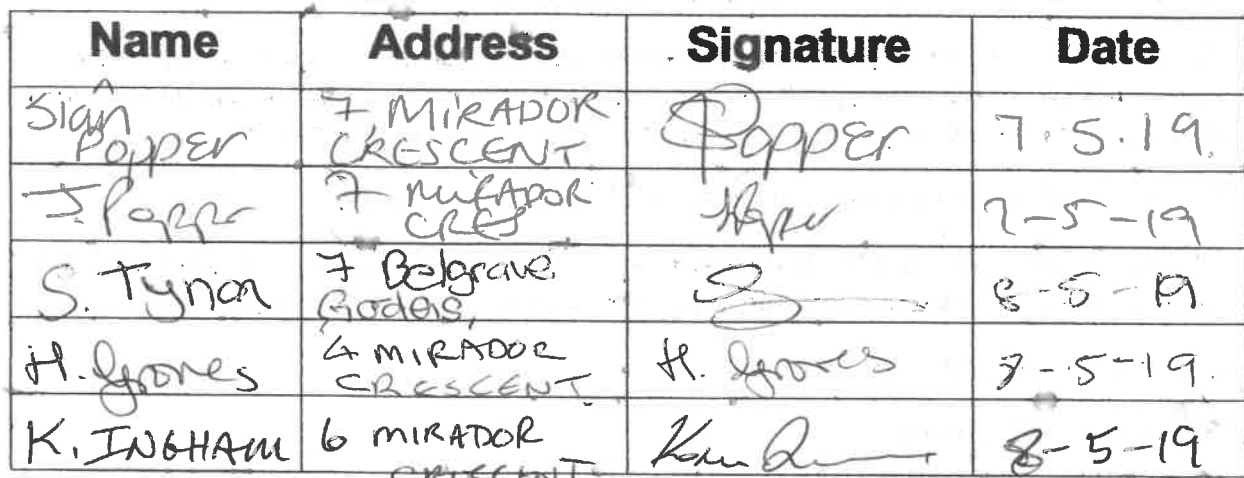 Name Address Signature Date
Siân Popper 7 MIRADOR CRESCENT SPopper 7.5.19.
J. Popper 7 MIRADOR CRES 7-5-19
S. Tynon 7 Belgrave Gardens, 8-5-19
H. Groves 4 MIRADOR CRESCENT H. Groves 8-5-19.
K. INGHAM 6 MIRADOR CRESCENT 8-5-19